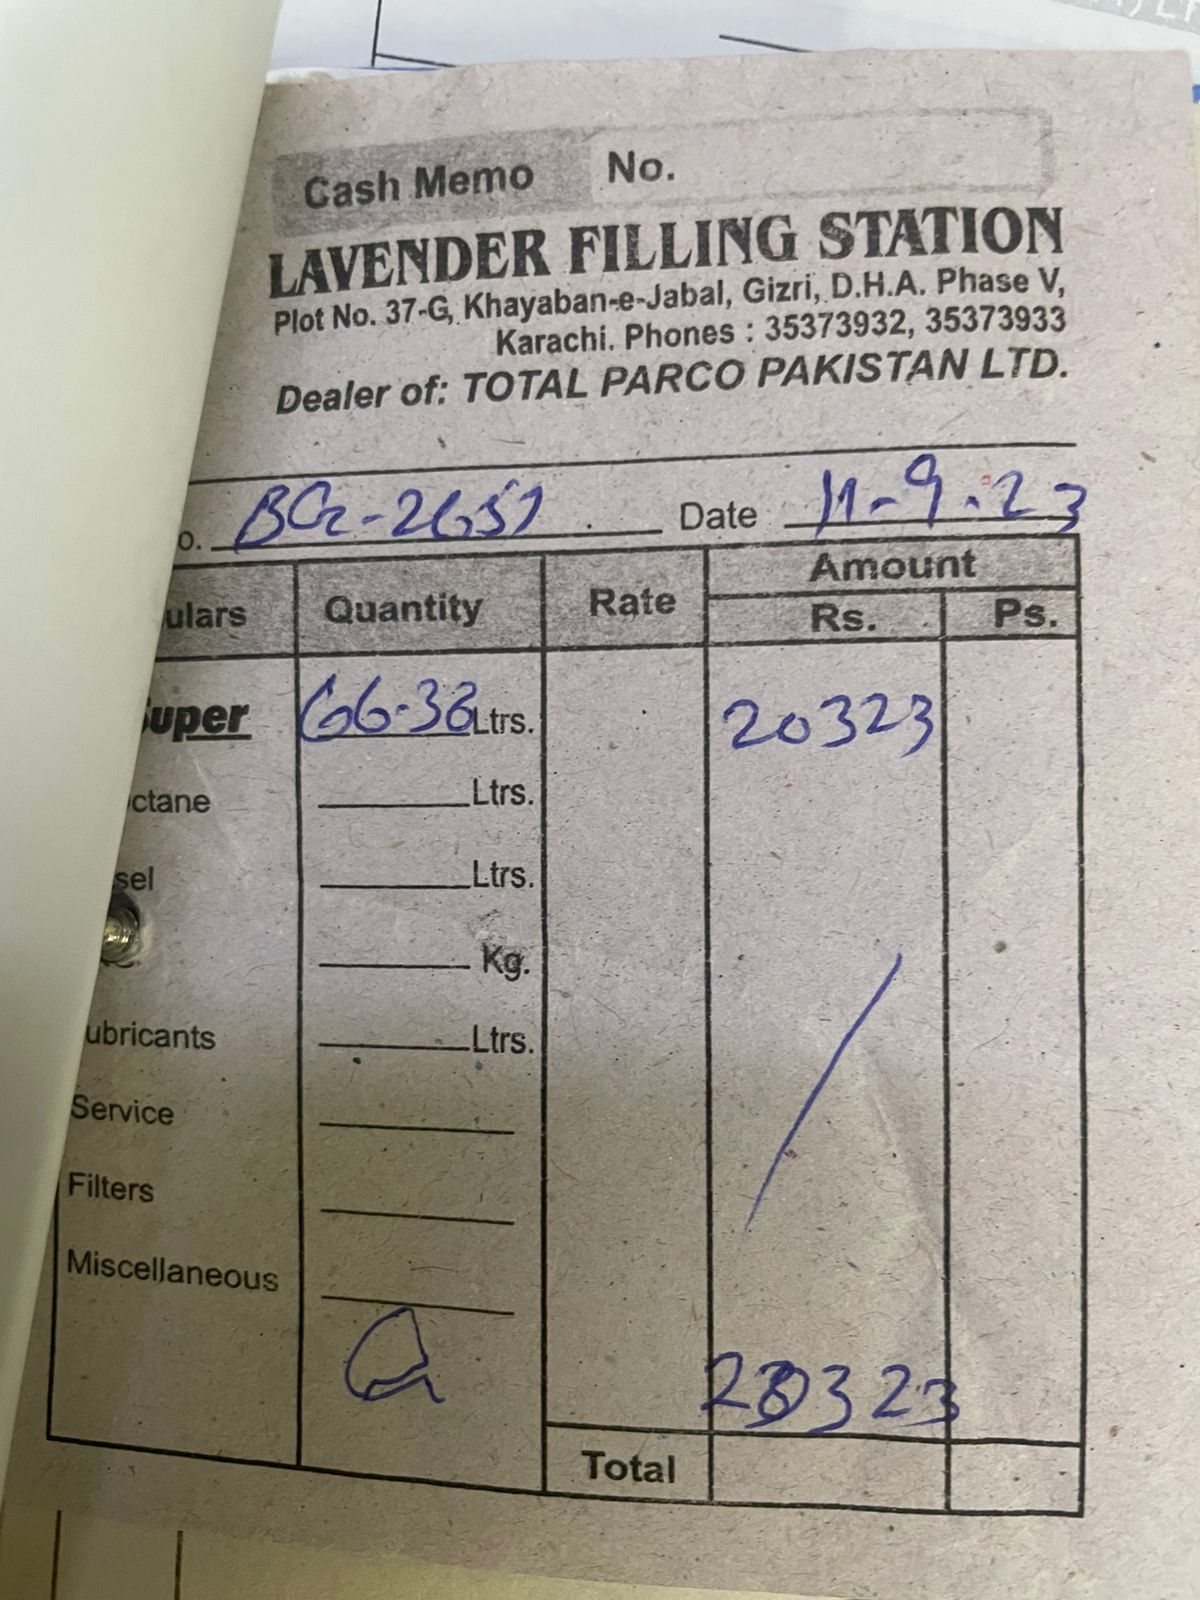 Cash Memo No.
LAVENDER FILLING STATION
Plot No. 37-G, Khayaban-e-Jabal, Gizri, D.H.A. Phase V,
Karachi. Phones : 35373932, 35373933
Dealer of: TOTAL PARCO PAKISTAN LTD.
o. Date 11-9-23
ulars Quantity Rate Amount
Rs. Ps.
Super 66-38 Ltrs. 20323
ctane Ltrs.
sel Ltrs.
Kg.
ubricants Ltrs.
Service
Filters
Miscellaneous
20323
Total